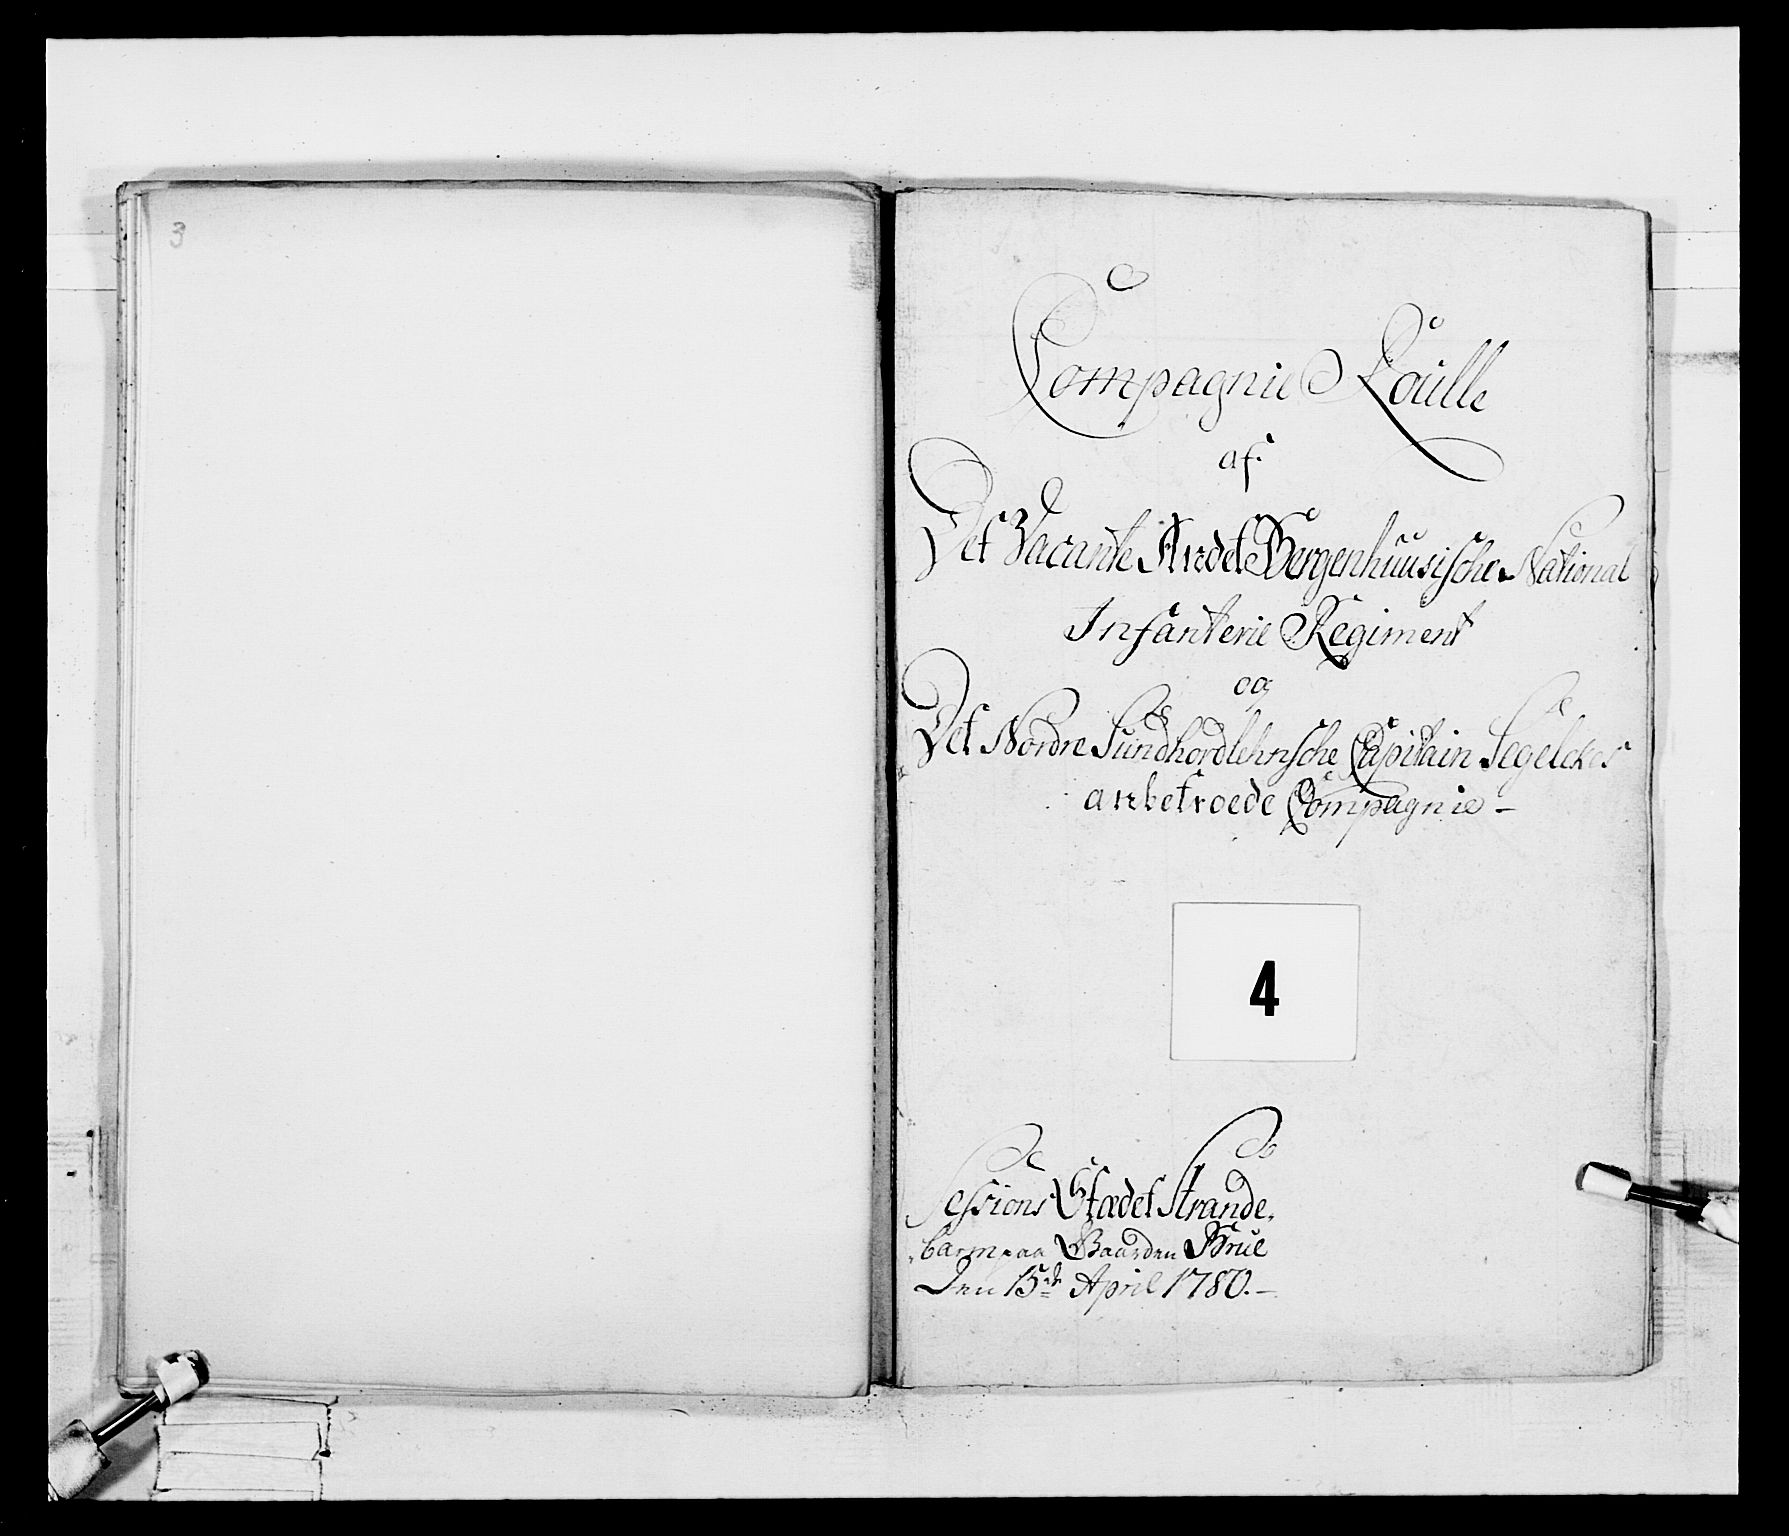 3
Compagnie Roulle
af
Det Vacante Andet Bergenhuusische National
Infanterie Regiment
og
Det Nordre Sundhordlehnsche Capitain Segelckes
anbetroede Compagnie –
4
Sessions Stædet Strande,
barm paa Gaarden Brue
Den 15de April 1780. –